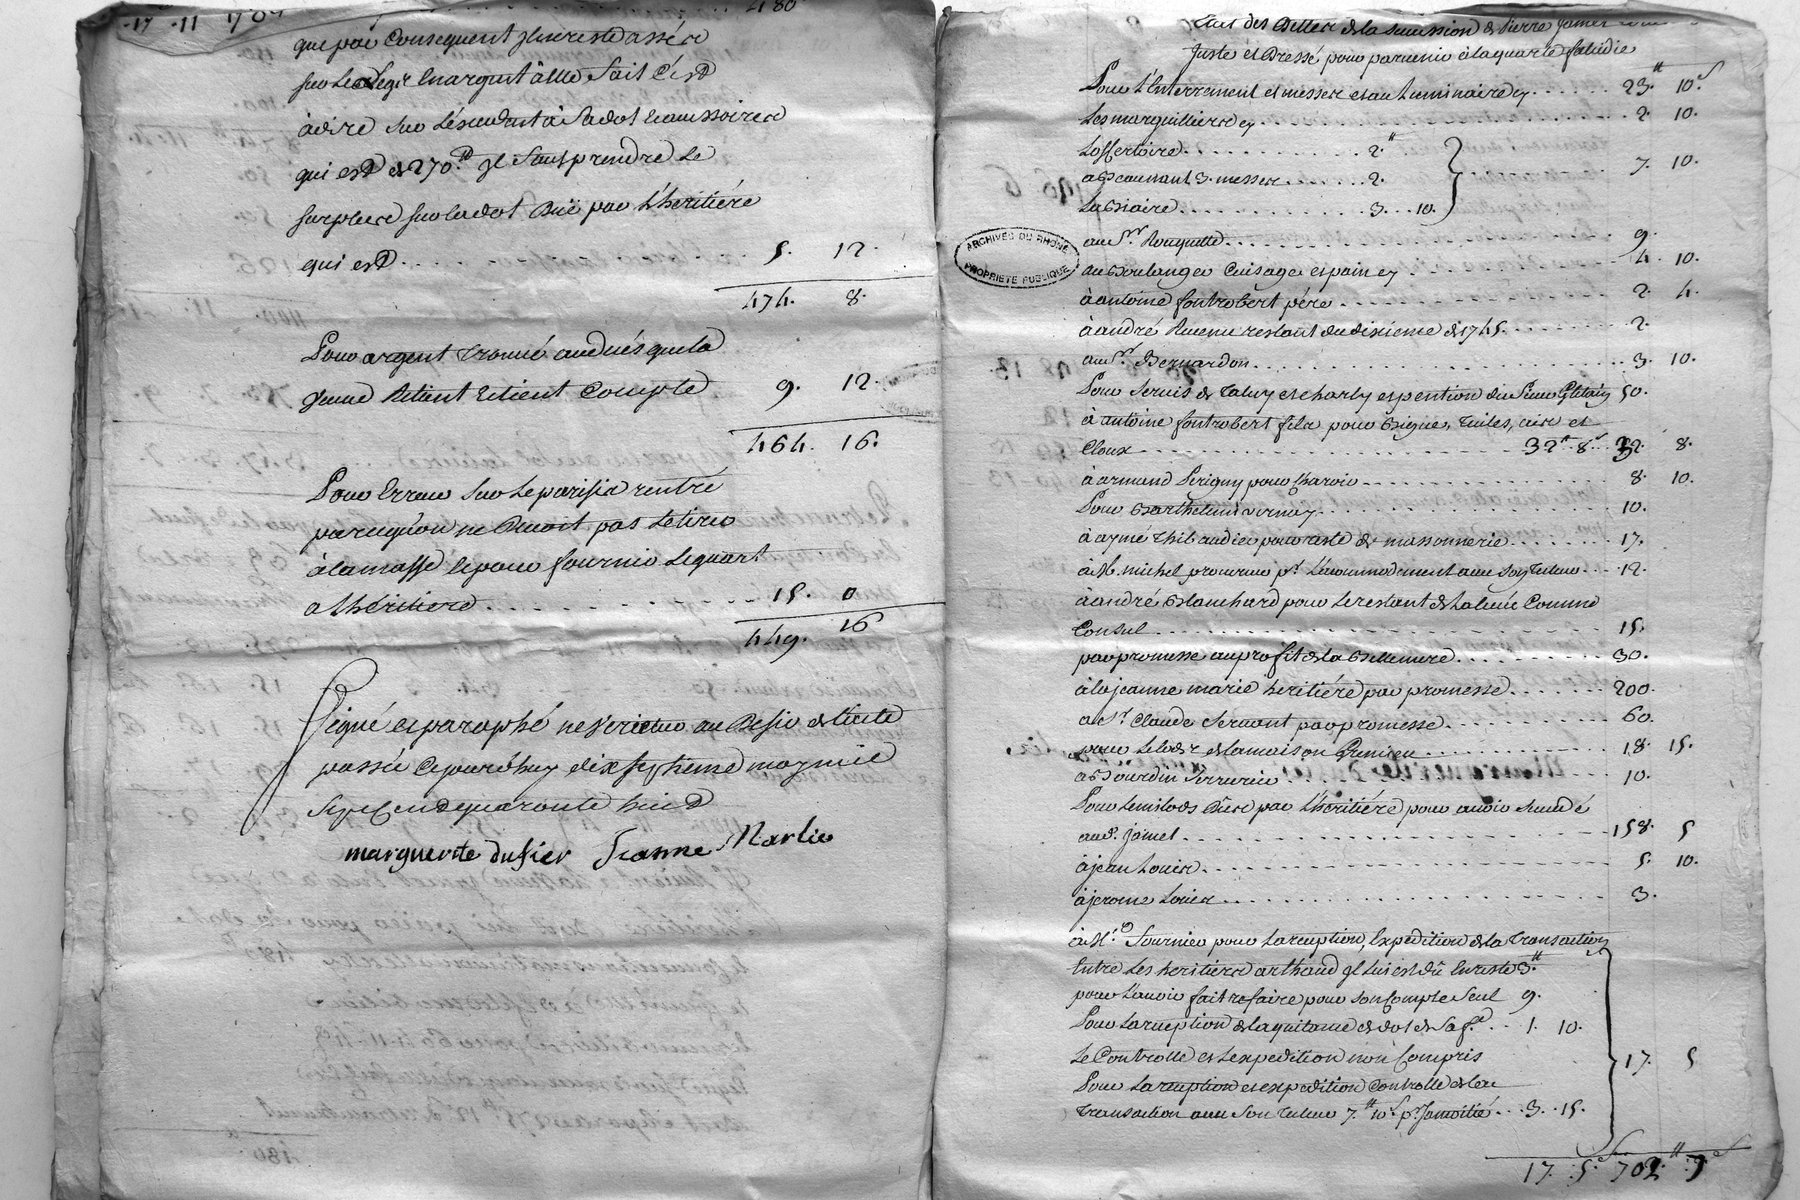 17 11
480
que par Consequent Il ne reste assise
sur Le Legs en argent à elle fait C'est
à dire sur L'éxcedant à sa dot
qui est de 270.tt Il faut prendre Le
surplus sur la dot Düe par L'heritiére
qui est . . . . . 5. 12.
474. 8.
Pour argent trouvé au decés que la
jeune Retient et tient Compte 9. 12.
464. 16.
Pour Erreur sur Le parisis rentré
parcequ'on ne Devoit pas Le tirer
à la masse le pour fournir Le quart
a L'héritiere . . . . . 15. 0
449. 16
Signé et paraphé ne varietur au Desir de L'acte
passé Cejourd'huy dix septieme may mil
Sept Cent quarante huit
marguerite dusier Jeanne Marlie
Etat des Dettes de la succession de Pierre Jamet
juste et Dressé pour parvenir à la quarte falcidie
Pour L'Enterrement et messes et au Luminaire cy . . . . . 23.tt 10.s
Les marguilliers cy . . . . . 2. 10.
L'offertoire . . . . . 2.tt
a Beaunant 3. messes . . . . . 2.
La Biaire . . . . . 3. . . 10.
7. 10.
au Sr. Rouquette . . . . . 9.
au Boulanger Cuisage et pain cy . . . . . 4. 10.
à antoine fontrobert pére . . . . . 2. 4.
à andré Ruenu restant du dixieme de 1745. . . . . . 2.
au Sr. Bernardon . . . . . 3. 10.
Pour Servis de Taluy et Charly et pention du 50.
à antoine fontrobert fils pour Brigues, Tuiles, air et
Cloux . . . . . 32.tt 8.s 32. 8.
à armand Perigny pour Charoir . . . . . 8. 10.
Pour Barthelemi vernay . . . . . 10.
à aymé Thibaudier pour reste de massonnerie . . . . . 17.
à M. michel procureur pr. L'accommodement avec son Tuteur . . . 12.
à andré Blanchard pour Le restant de la Levée Comme
Consul . . . . . 15.
par promesse au profit de la Bellemere . . . . . 30.
à la jeanne marie heritiére par promesse . . . . . 200.
a Sr. Claude Servant par promesse . . . . . 60.
pour Le Lods de la maison Grenieu . . . . . 18. 15.
a Bourdin Serrurier . . . . . 10.
Pour Le milods Dües par L'heritiére pour avoir succedé
aud. jamet . . . . . 158. 5
à jean Loüis . . . . . 5. 10.
à jerome Loüis . . . . . 3.
à Me. Fournier pour La reception, Expedition de la Transaction
Entre Les heritiers arthaud Il Lui est dû En reste 3.tt
pour L'avoir fait refaire pour son Compte Seul 9.
Pour La reception de la quitance de dot de Sa fe. . . 1. 10.
Le Controlle et L'expedition non Compris
17. 5
Pour La reception et expedition Controlle de la
Transaction avec Son Tuteur 7.tt 10.s pr. sa moitié . . . 3. . 15.
17. 5.s 702.tt 9.s
ARCHIVES DU RHÔNE
PROPRIÉTÉ PUBLIQUE